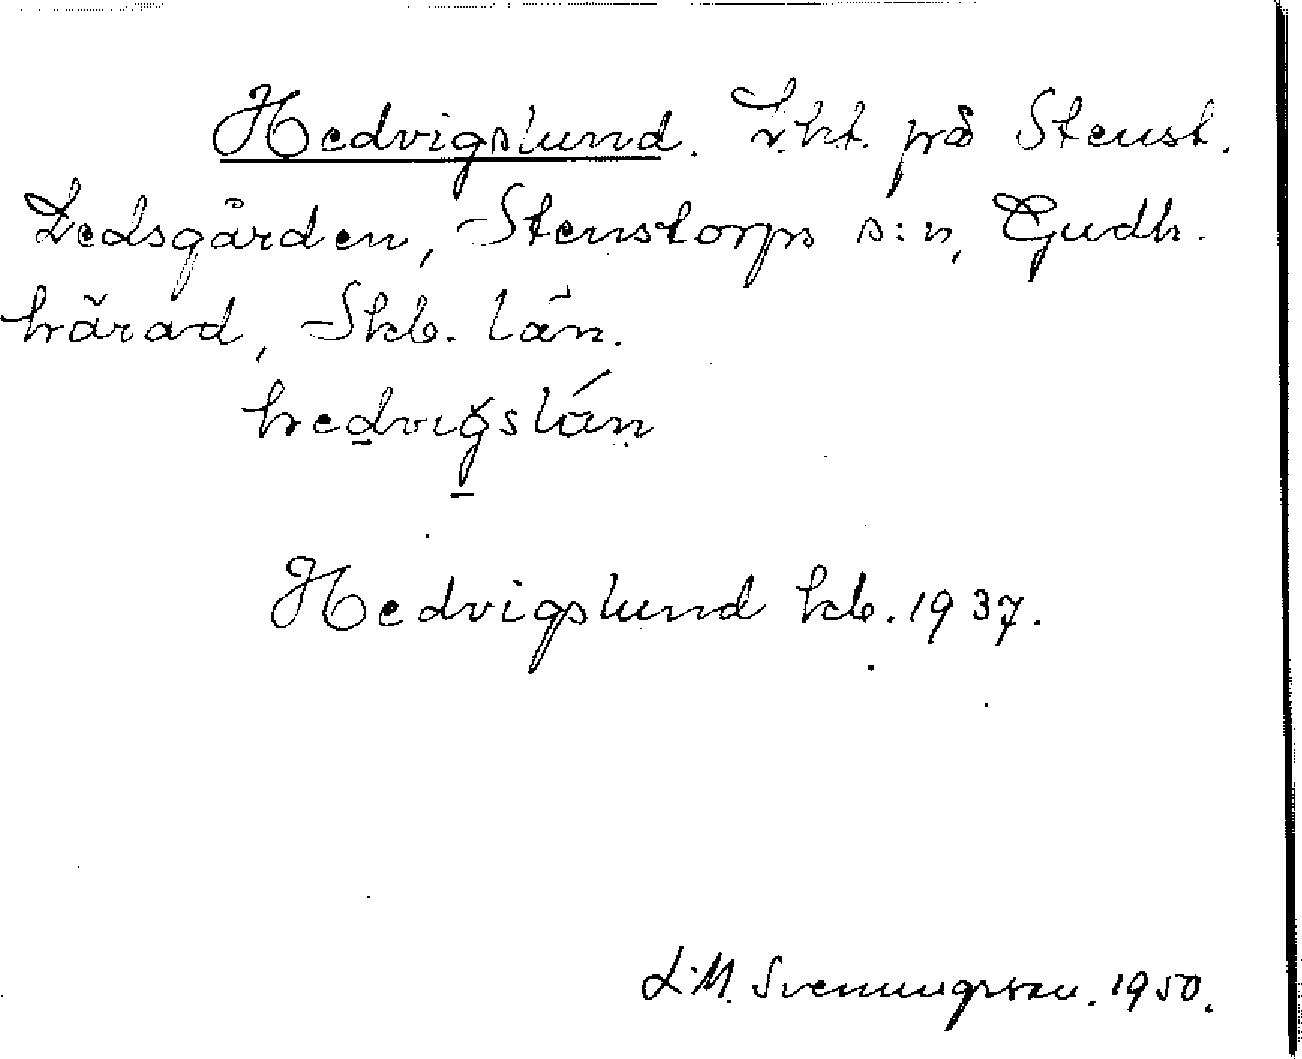 Hedvigslund. Lht. på Stenst.
Dedsgården, Stenstorps s:n, Gudh.
härad, Skb. län.
hedvigslán
Hedvigslund kb. 1937.
L.M. Svenungsson. 1950.